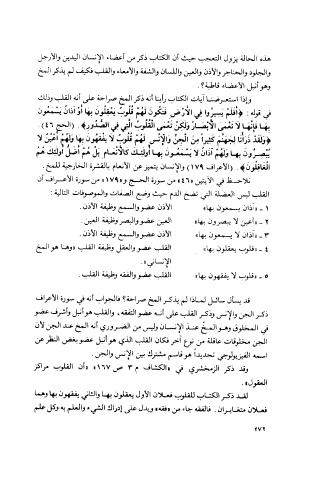 هذه الحالة يزول التعجب حيث أن الكتاب ذكر من أعضاء الإنسان اليدين والأرجل
والجلود والحناجر والأذن والعين واللسان والشفة والأمعاء والقلب فكيف لم يذكر المخ
وهو أنبل الأعضاء قاطبة؟.
وإذا استعرضنا آيات الكتاب رأينا أنه ذكر المخ صراحة على أنه القلب وذلك
في قوله: ﴿أَفَلَمْ يَسِيرُوا فِي الأَرْضِ فَتَكُونَ لَهُمْ قُلُوبٌ يَعْقِلُونَ بِهَا أَوْ آذَانٌ يَسْمَعُونَ
بِهَا فَإِنَّهَا لَا تَعْمَى الأَبْصَارُ وَلَكِنْ تَعْمَى الْقُلُوبُ الَّتِي فِي الصُّدُورِ﴾. (الحج ٤٦)
﴿وَلَقَدْ ذَرَأْنَا لِجَهَنَّمَ كَثِيراً مِنَ الْجِنِّ وَالإِنْسِ لَهُمْ قُلُوبٌ لَا يَفْقَهُونَ بِهَا وَلَهُمْ أَعْيُنٌ لَا
يُبْصِرُونَ بِهَا وَلَهُمْ آذَانٌ لَا يَسْمَعُونَ بِهَا أُولَئِكَ كَالأَنْعَامِ بَلْ هُمْ أَضَلُّ أُولَئِكَ هُمُ
الْغَافِلُونَ﴾. (الأعراف ١٧٩) والإنسان يتميز عن الأنعام بالقشرة الخارجية للمخ.
نلاحظ في الآيتين «٤٦» من سورة الحج و«١٧٩» من سورة الأعراف أن
القلب ليس العضلة التي تضخ الدم حيث وضع الصفات والموصوفات التالية:
١ - «آذان يسمعون بها» الأذن عضو والسمع وظيفة الأذن.
٢ - «أعين لا يبصرون بها» العين عضو والبصر وظيفة العين.
٣ - «آذان لا يسمعون بها» الأذن عضو والسمع وظيفة الأذن.
٤ - «قلوب يعقلون بها» القلب عضو والعقل وظيفة القلب «وهنا هو المخ
الإنساني».
٥ - «قلوب لا يفقهون بها» القلب عضو والفقه وظيفة القلب.
قد يسأل سائل لماذا لم يذكر المخ صراحة؟ فالجواب أنه في سورة الأعراف
ذكر الجن والإنس وذكر القلب على أنه عضو التفقه، والقلب هو أنبل وأشرف عضو
في المخلوق وهو المخ عند الإنسان وليس من الضروري أنه المخ عند الجن لأن
الجن مخلوقات عاقلة من نوع آخر فكان القلب الذي هو أنبل عضو بغض النظر عن
اسمه الفيزيولوجي تحديداً هو قاسم مشترك بين الإنس والجن.
وقد ذكر الزمخشري في «الكشاف م ٣ ص ١٦٧» «أن القلوب مراكز
العقول».
لقد ذكر الكتاب للقلوب فعلان الأول يعقلون بها والثاني يفقهون بها وهما
فعلان متغايران. فالفقه جاء من «فقه» ويدل على إدراك الشيء والعلم به وكل علم
٢٧٢